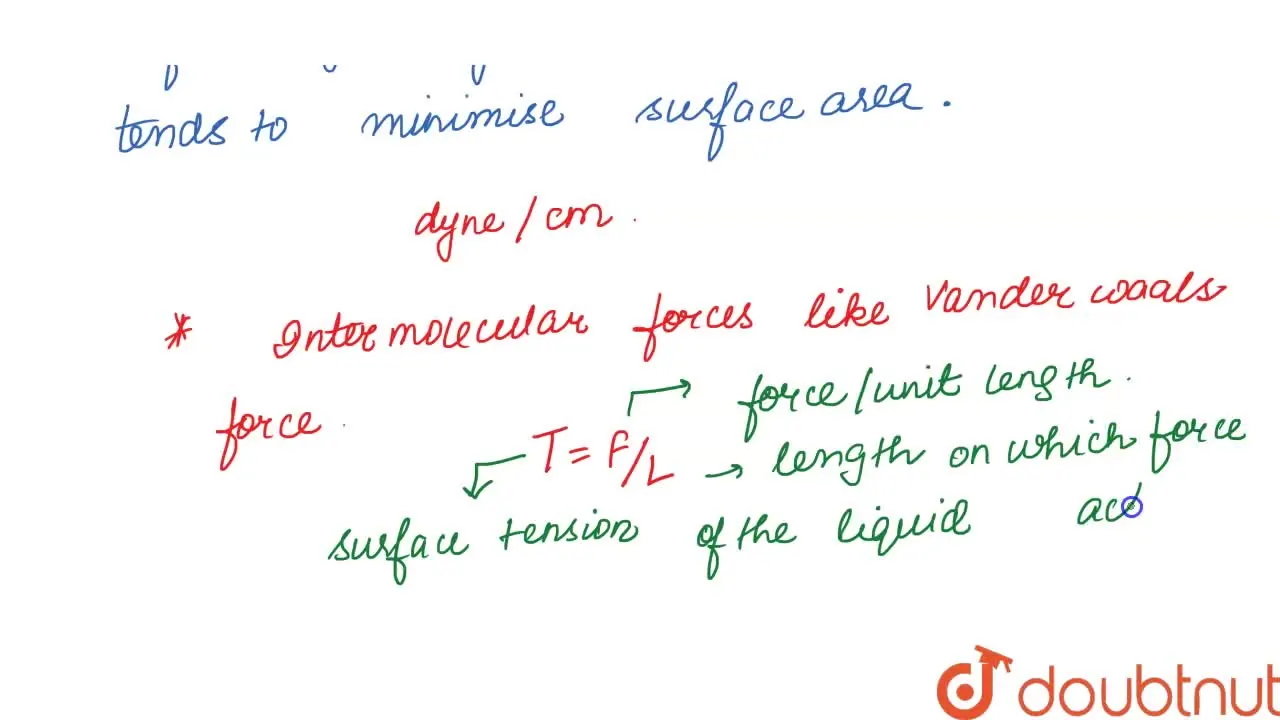 tends to minimise surface area.
dyne/cm.
* Intermolecular forces like Vander waals
force.
→ force/unit length.
T = F/L → length on which force
surface tension of the liquid act
doubtnut